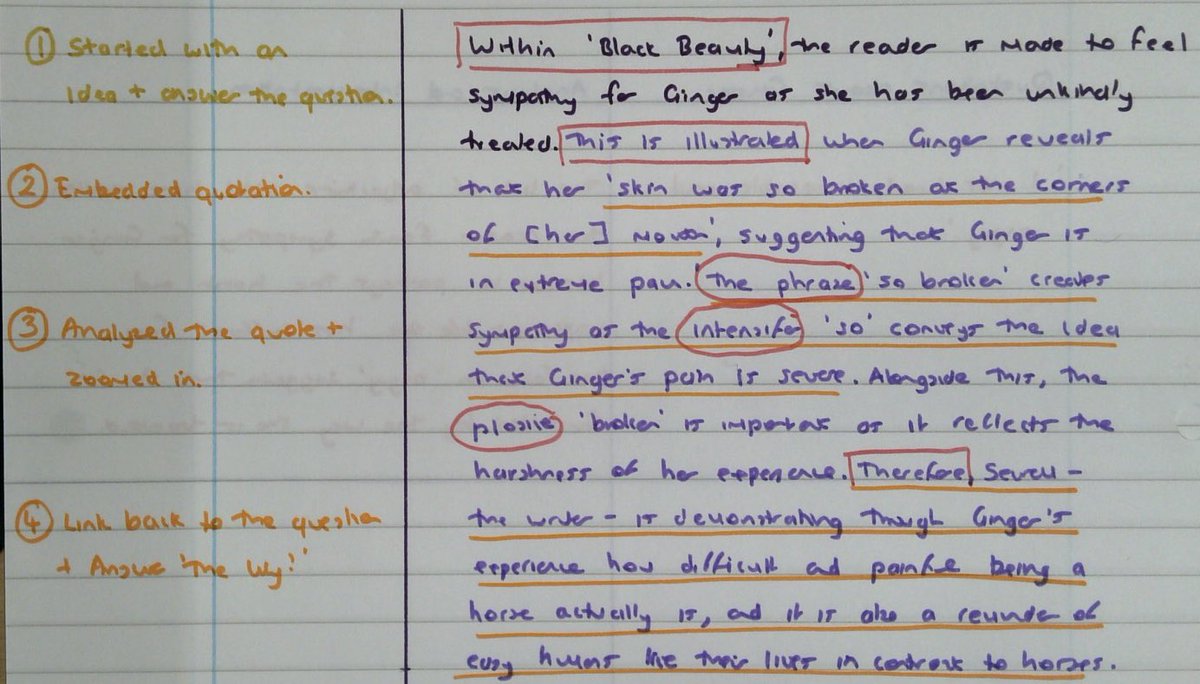 ① Started with an
idea + answer the question.
② Embedded quotation.
③ Analysed the quote +
zoomed in.
④ Link back to the question
+ Answer 'the why!'
Within 'Black Beauty', the reader is made to feel
sympathy for Ginger as she has been unkindly
treated. This is illustrated when Ginger reveals
that her 'skin was so broken at the corners
of [her] mouth', suggesting that Ginger is
in extreme pain. The phrase 'so broken' creates
sympathy as the intensifer 'so' conveys the idea
that Ginger's pain is severe. Alongside this, the
plosive 'broken' is important as it reflects the
harshness of her experience. Therefore, Sewell -
the writer - is demonstrating through Ginger's
experience how difficult and painful being a
horse actually is, and it is also a reminder of
easy humans live their lives in contrast to horses.